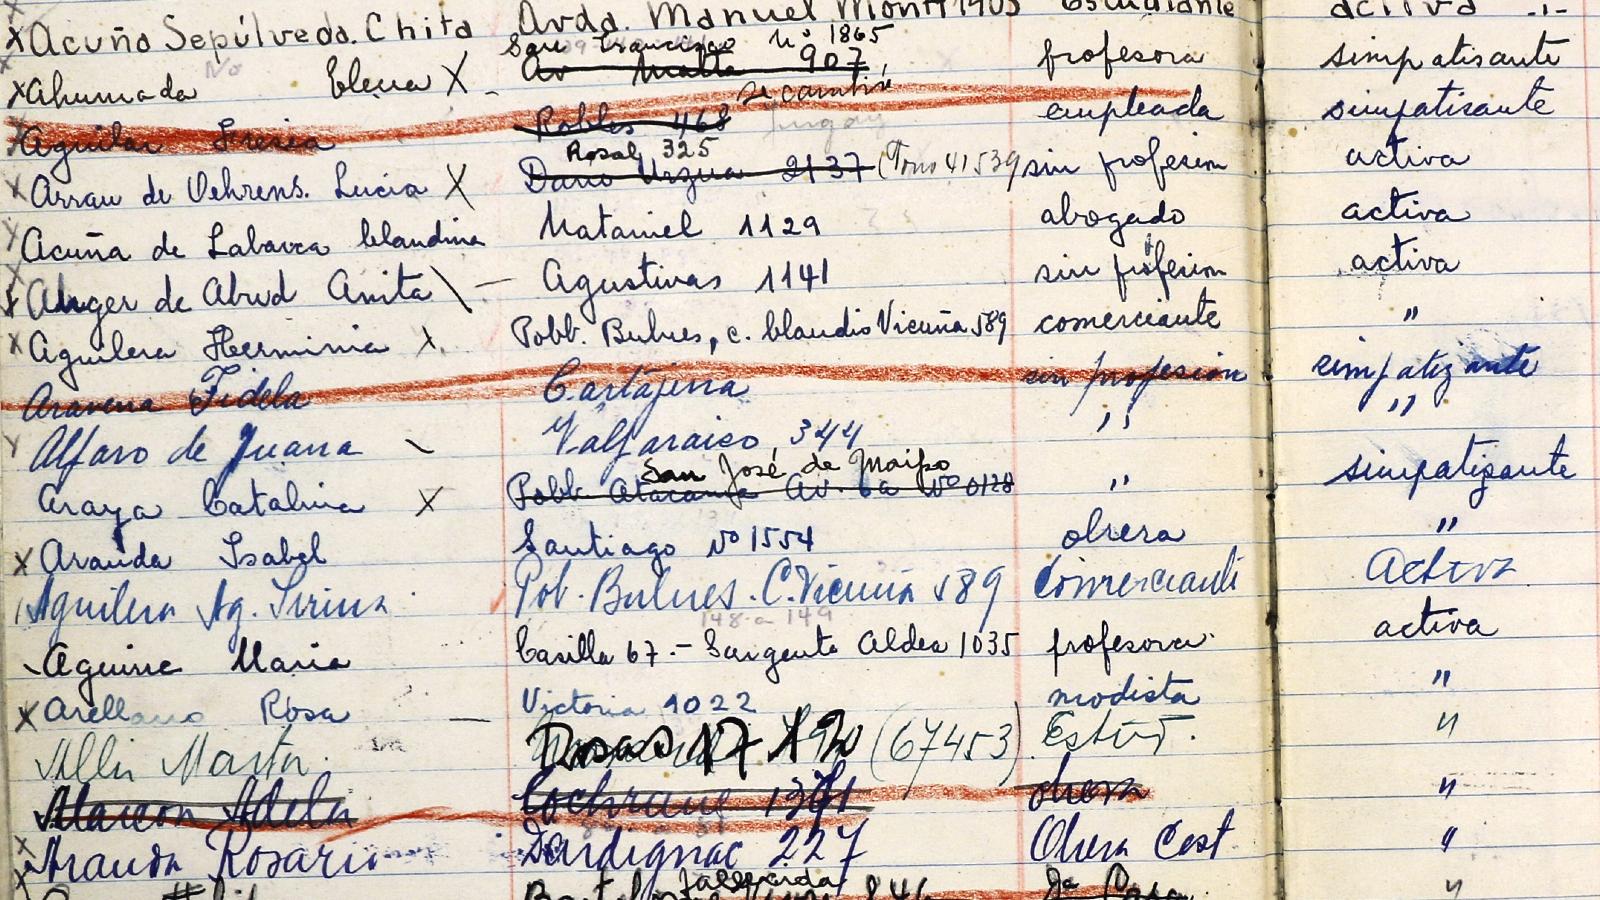 Acuña Sepúlveda. Chita Avda. Manuel Montt 1905 Estudiante activa
San Francisco Nº 1865
Ahumada Elena X Av Matta 907 profesora simpatisante
se cambió
Aguilar Fresia Robles 468 empleada simpatisante
Rosal 325
Arrau de Oehrens. Lucia X Dario Urzua 2137 (Fono 41539 sin profesion activa
Acuña de Labarca Clandina Nataniel 1129 abogado activa
Auger de Abud Anita \ — Agustinas 1141 sin profesion activa
Aguilera Herminia X. Pobl. Bulnes, c. Claudio Vicuña 589 comerciante "
Aravena Fidela Cartajena sin profesion simpatizante
Alfaro de Juana Valparaiso 344 " "
San José de Maipo
Araya Catalina X Pobl. Atacama Av. Nº 0128 " simpatizante
X Aranda Isabel Santiago Nº 1554 obrera "
Aguilera Ag. Pob. Bulnes. C. Vicuña 589 Comerciante Activa
148 a 149
Aguirre Maria Casilla 67.- Sargento Aldea 1035 profesora activa
X Arellano Rosa — Victoria 1022 modista "
Marta. Rosas 17 (67453) Estud. "
Alarcon Adela Cochrane obrera "
Aranda Rosario Dardignac 227 Obrera Cost "